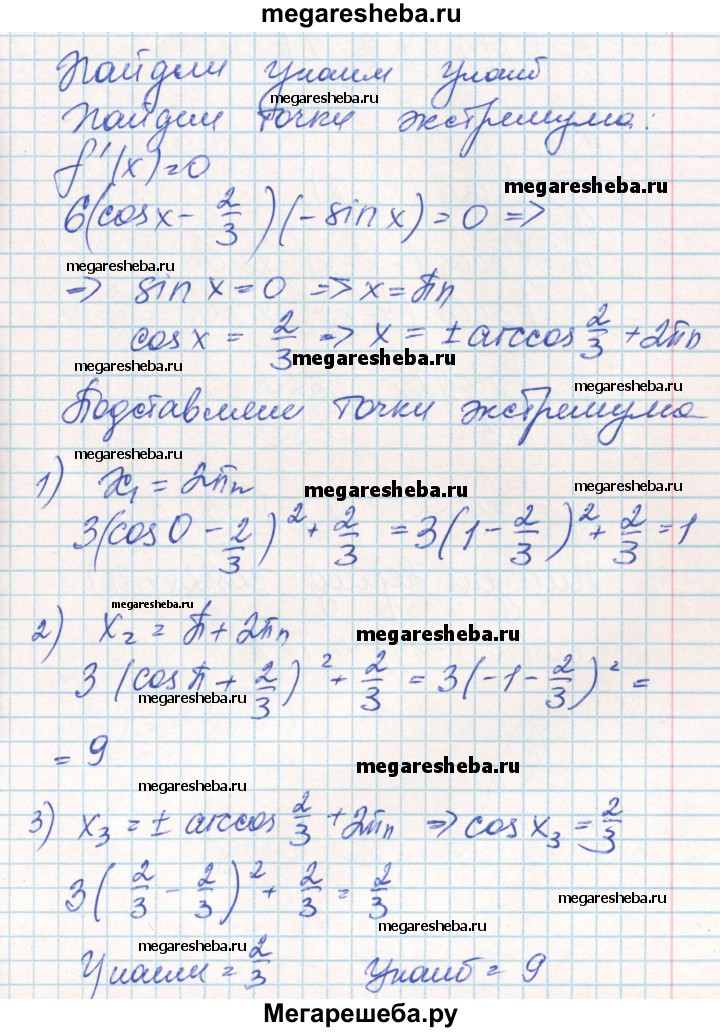 megaresheba.ru
Найдем yнаим yнаиб
megaresheba.ru
Найдем точки экстремума:
f'(x)=0
megaresheba.ru
6(cosx - 2/3)(-sin x) = 0 =>
megaresheba.ru
=> sin x = 0 => x = πn
cos x = 2/3 => x = ± arccos 2/3 + 2πn
megaresheba.ru
megaresheba.ru
megaresheba.ru
Подставляем точки экстремума
megaresheba.ru
1) x₁ = 2πn
megaresheba.ru
3(cos0 - 2/3)² + 2/3 = 3(1 - 2/3)² + 2/3 = 1
megaresheba.ru
2) x₂ = π + 2πn
megaresheba.ru
3(cosπ + 2/3)² + 2/3 = 3(-1 - 2/3)² =
megaresheba.ru
= 9
megaresheba.ru
megaresheba.ru
3) x₃ = ± arccos 2/3 + 2πn => cos x₃ = 2/3
megaresheba.ru
3(2/3 - 2/3)² + 2/3 = 2/3
megaresheba.ru
megaresheba.ru
yнаим = 2/3 yнаиб = 9
megaresheba.ru
Мегарешеба.ру